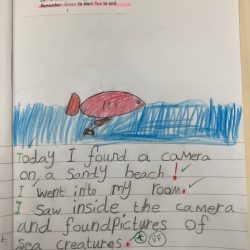 Remember: Green to start Red to end.
Today I found a camera
on, a Sandy beach !
I went into my room.
I Saw inside the camera
and foundpictures of
Sea creatures.